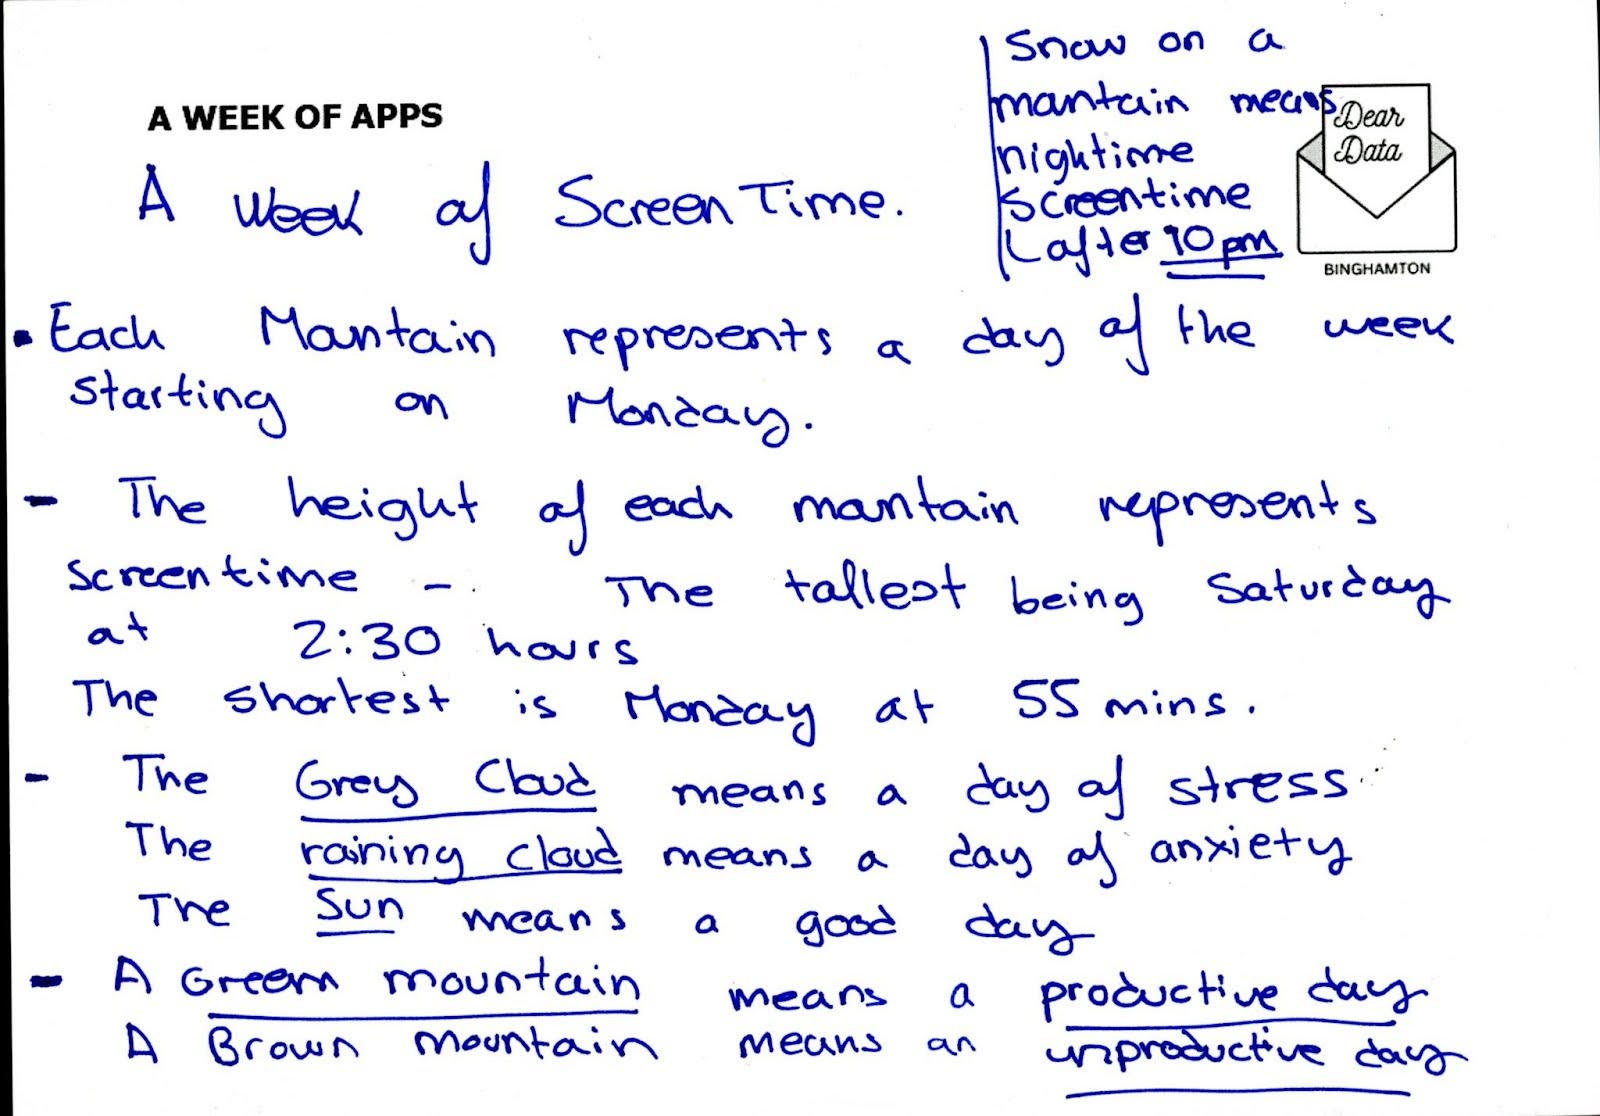 A WEEK OF APPS
A week of Screen Time.
Snow on a
mantain means
nightime
screentime
after 10 pm
Dear
Data
BINGHAMTON
• Each Mantain represents a day of the week
starting on Monday.
- The height of each mantain represents
screentime - . The tallest being Saturday
at 2:30 hours
The shortest is Monday at 55 mins.
- The Grey Cloud means a day of stress
The raining cloud means a day of anxiety
The Sun means a good day
- A Green mountain means a productive day
A Brown mountain means an unproductive day